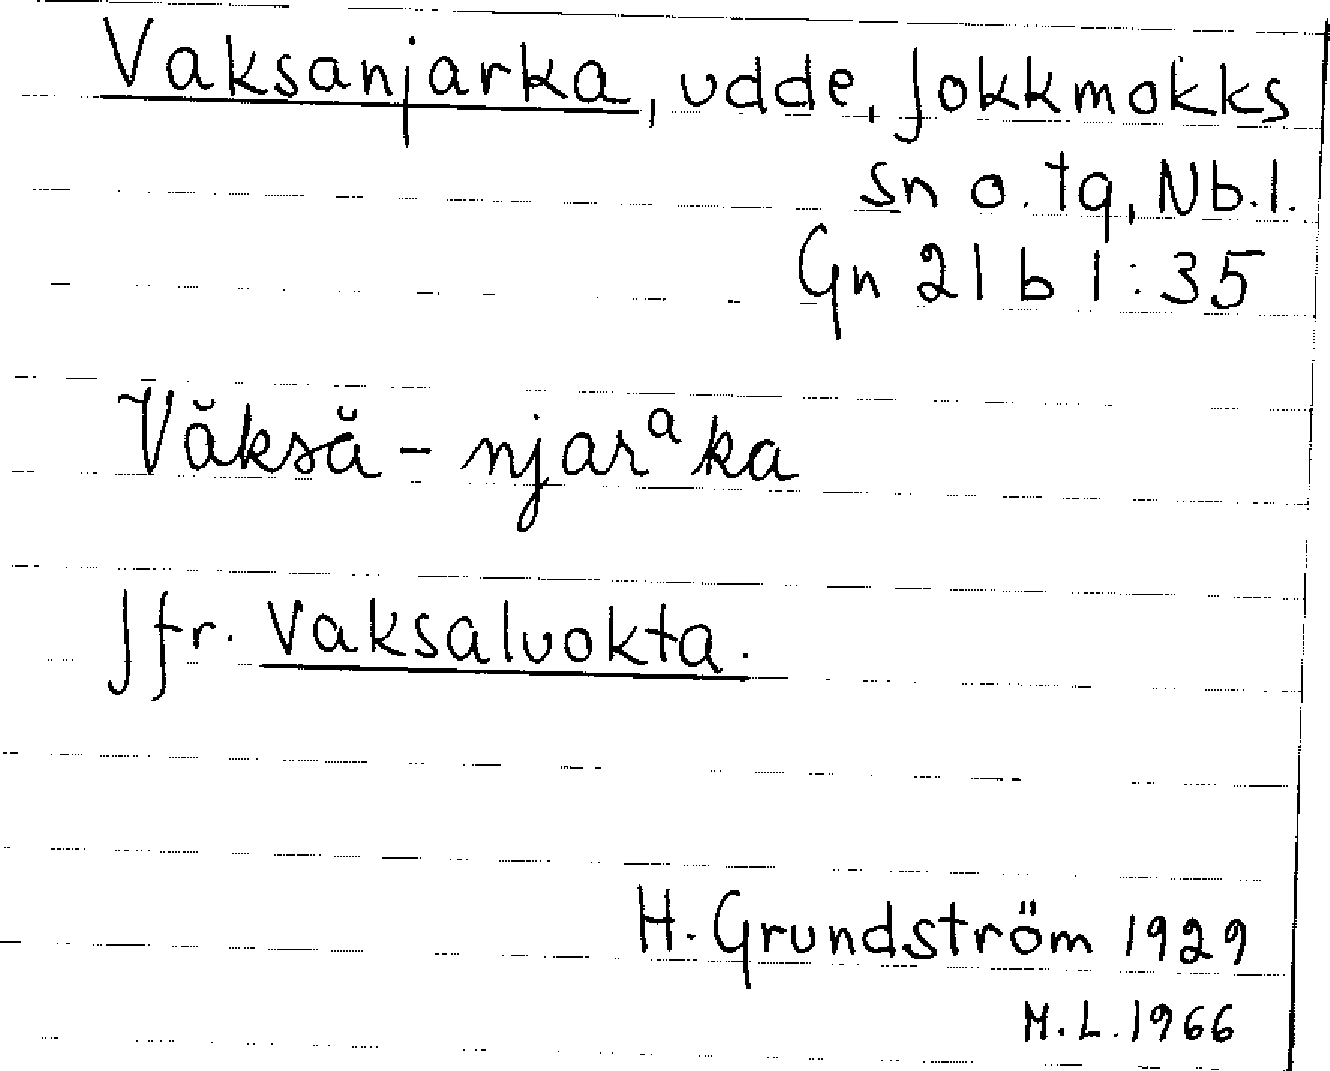 Vaksanjarka, udde, Jokkmokks
sn o. tg, Nb. l.
Gn 21 b 1:35
Văksă - njarᵃka
Jfr. Vaksaluokta.
H. Grundström 1929
M.L. 1966